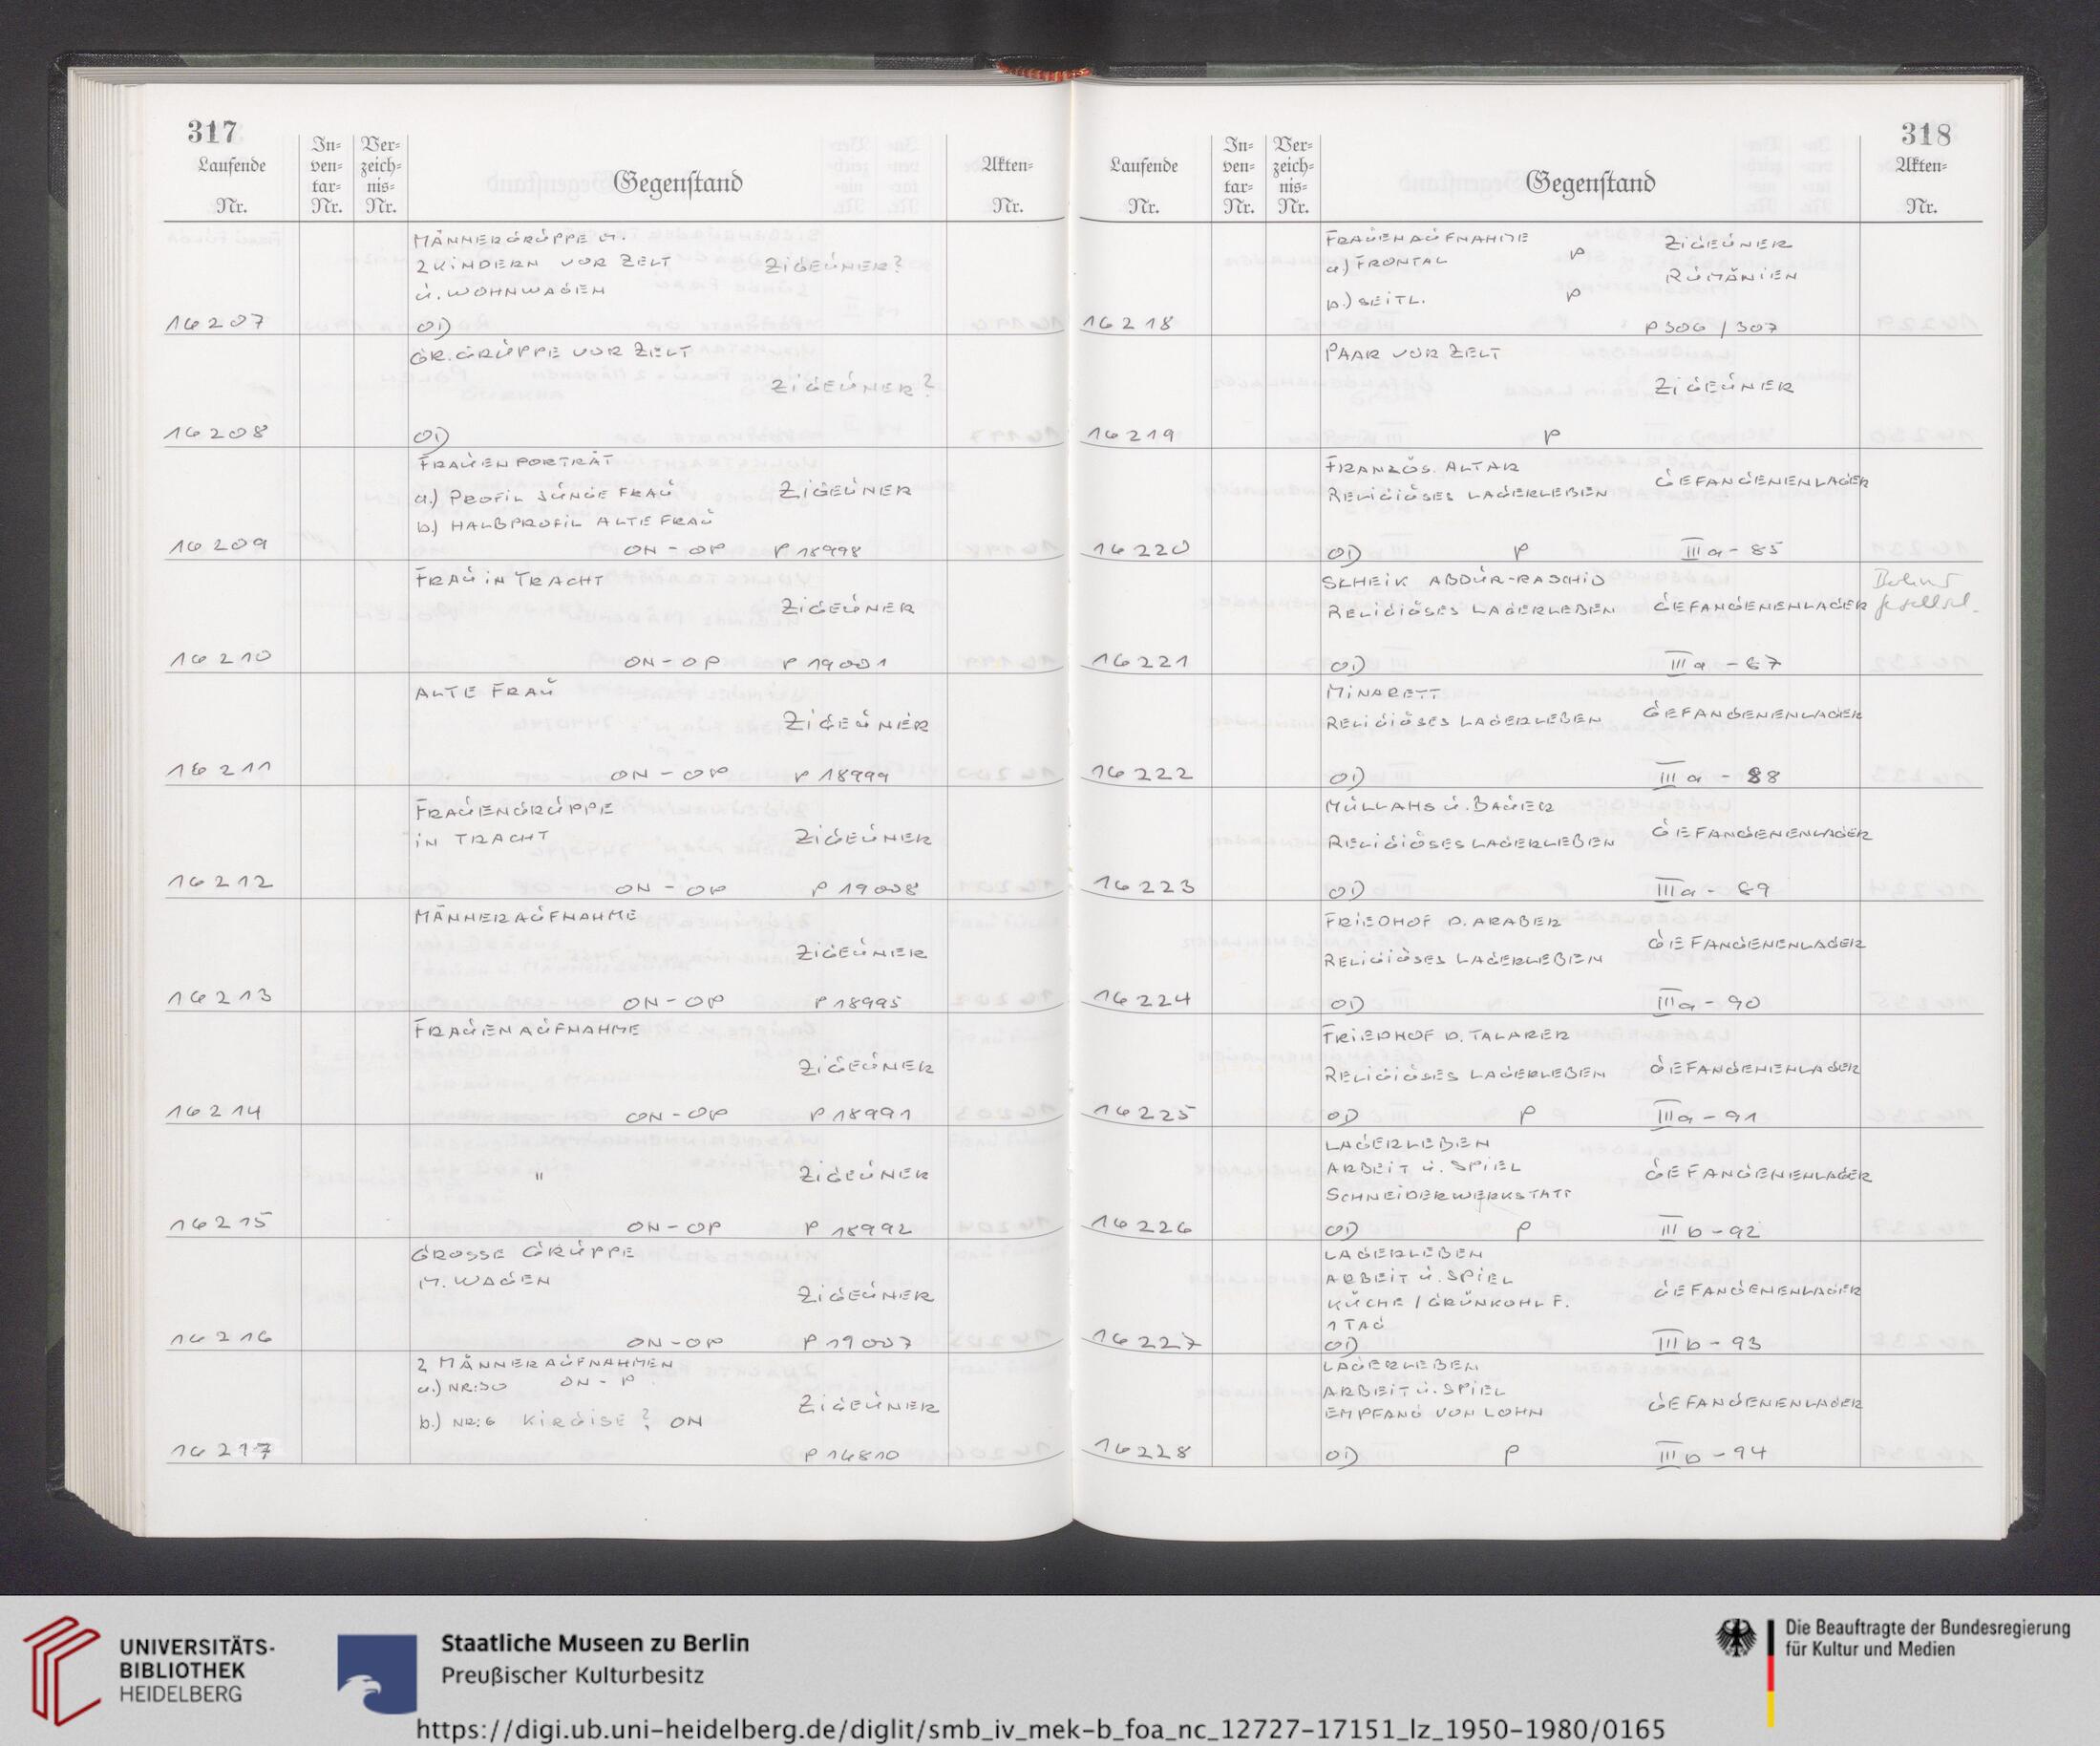 317
Laufende Nr.
In-ven-tar-Nr.
Ver-zeich-nis-Nr.
Gegenstand
Akten-Nr.
MÄNNERGRUPPE M.
2 KINDERN VOR ZELT ZIGEUNER?
U. WOHNWAGEN
16207 OD
GR. GRUPPE VOR ZELT
ZIGEUNER?
16208 OD
FRAUENPORTRÄT
a.) PROFIL JUNGE FRAU ZIGEUNER
b.) HALBPROFIL ALTE FRAU
16209 ON - OP P 18998
FRAU IN TRACHT
ZIGEUNER
16210 ON - OP P 19001
ALTE FRAU
ZIGEUNER
16211 ON - OP P 18999
FRAUENGRUPPE
IN TRACHT ZIGEUNER
16212 ON - OP P 19008
MÄNNERAUFNAHME
ZIGEUNER
16213 ON - OP P 18995
FRAUENAUFNAHME
ZIGEUNER
16214 ON - OP P 18991
" ZIGEUNER
16215 ON - OP P 18992
GROSSE GRUPPE
M. WAGEN
ZIGEUNER
16216 ON - OP P 19007
2 MÄNNERAUFNAHMEN
a.) NR:30 ON - P
ZIGEUNER
b.) NR:6 KIRGISE? ON
16217 P 16810
318
Laufende Nr.
In-ven-tar-Nr.
Ver-zeich-nis-Nr.
Gegenstand
Akten-Nr.
FRAUENAUFNAHME ZIGEUNER
a) FRONTAL P
RUMÄNIEN
b.) SEITL. P
16218 P 306 / 307
PAAR VOR ZELT
ZIGEUNER
16219 P
FRANZÖS. ALTAR
RELIGIÖSES LAGERLEBEN GEFANGENENLAGER
16220 OD P IIIa - 85
SCHEIK ABDUR-RASCHID
RELIGIÖSES LAGERLEBEN GEFANGENENLAGER
16221 OD IIIa - 87
MINARETT
RELIGIÖSES LAGERLEBEN GEFANGENENLAGER
16222 OD IIIa - 88
MULLAHS U. BAUER
RELIGIÖSES LAGERLEBEN GEFANGENENLAGER
16223 OD IIIa - 89
FRIEDHOF D. ARABER
RELIGIÖSES LAGERLEBEN GEFANGENENLAGER
16224 OD IIIa - 90
FRIEDHOF D. TATAREN
RELIGIÖSES LAGERLEBEN GEFANGENENLAGER
16225 OD P IIIa - 91
LAGERLEBEN
ARBEIT U. SPIEL GEFANGENENLAGER
SCHNEIDERWERKSTATT
16226 OD P IIIb - 92
LAGERLEBEN
ARBEIT U. SPIEL
KÜCHE / GRÜNKOHL F. GEFANGENENLAGER
1 TAG
16227 OD IIIb - 93
LAGERLEBEN
ARBEIT U. SPIEL
EMPFANG VON LOHN GEFANGENENLAGER
16228 OD P IIIb - 94
UNIVERSITÄTS-
BIBLIOTHEK
HEIDELBERG
Staatliche Museen zu Berlin
Preußischer Kulturbesitz
Die Beauftragte der Bundesregierung
für Kultur und Medien
https://digi.ub.uni-heidelberg.de/diglit/smb_iv_mek-b_foa_nc_12727-17151_lz_1950-1980/0165